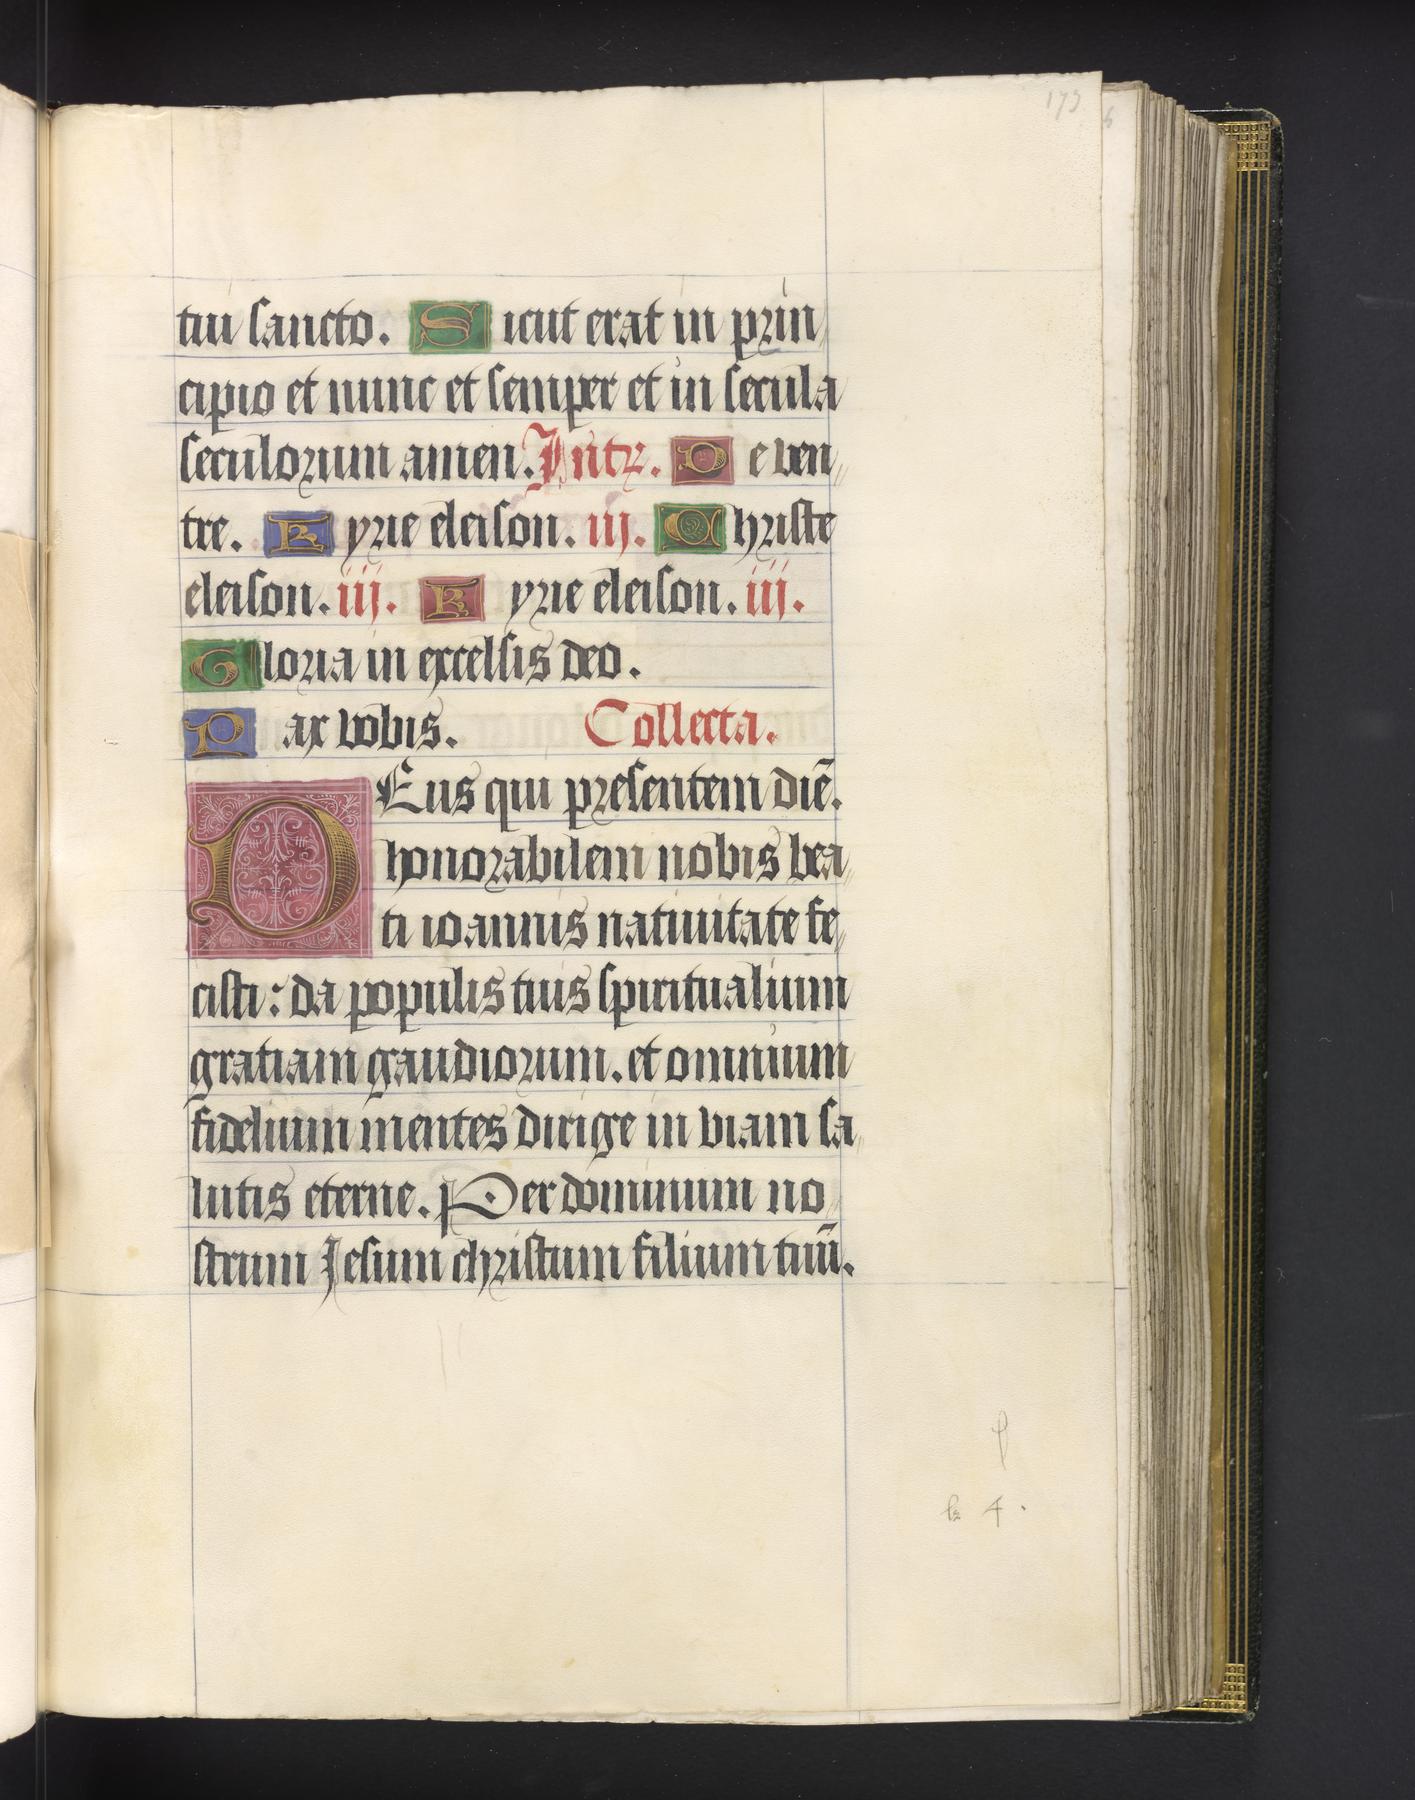 175
tui sancto. Sicut erat in prin
cipio et nunc et semper et in secula
seculorum amen. Intr. De ven
tre. Kyrie eleison. iij. Christe
eleison. iij. Kyrie eleison. iij.
Gloria in excelsis deo.
Pax vobis. Collecta.
DEus qui presentem diē.
honorabilem nobis bea
ti ioannis nativitate fe
cisti: da populis tuis spiritualium
gratiam gaudiorum. et omnium
fidelium mentes dirige in viam sa
lutis eterne. Per dominum no
strum Jesum christum filium tuū.